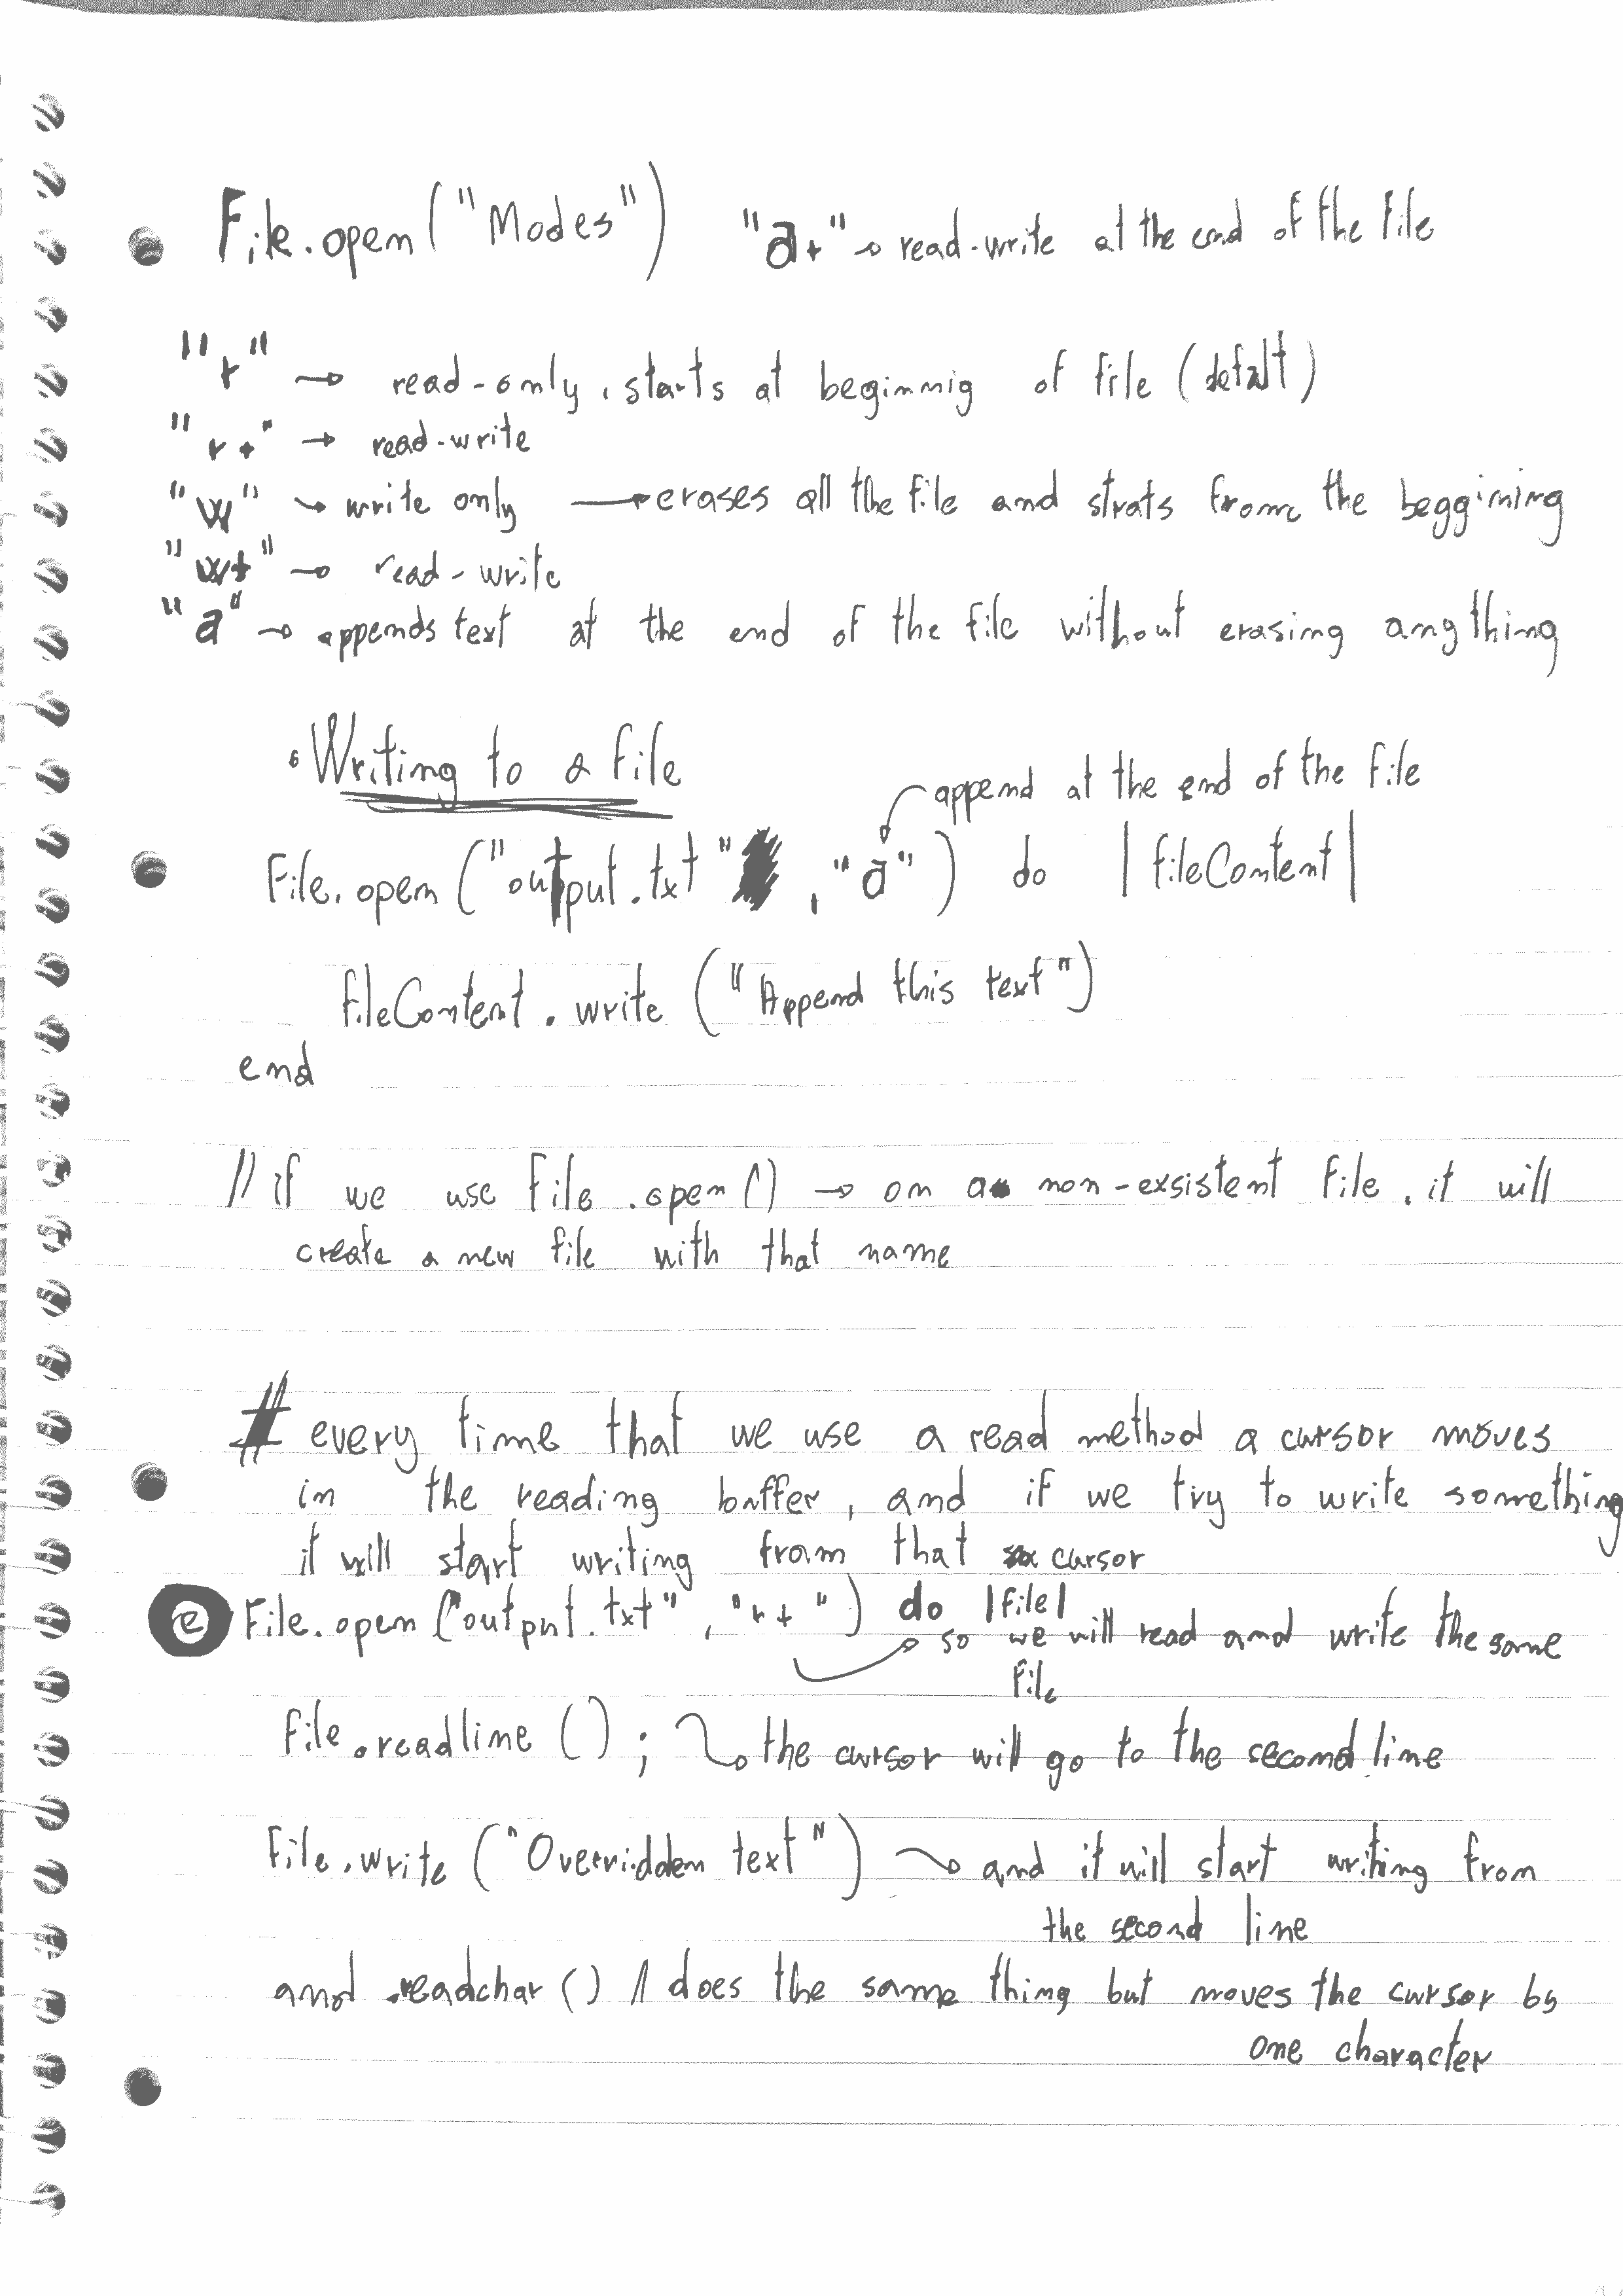 File.open("Modes")   "a+" → read-write at the end of the file
"r" → read-only, starts at beginnig of file (defalt)
"r+" → read-write
"w" → write only → erases all the file and strats from the beggining
"w+" → read-write
"a" → appends text at the end of the file without erasing anything
• Writing to a file
append at the end of the file
File.open("output.txt", "a") do |fileContent|
fileContent.write("Append this text")
end
// if we use file.open() → on a non-exsistent file, it will
create a new file with that name
# every time that we use a read method a cursor moves
in the reading buffer, and if we try to write something
it will start writing from that cursor
e File.open("output.txt", "r+") do |file|
→ so we will read and write the same
file
file.readline(); → the cursor will go to the second line
file.write("Overridden text") → and it will start writing from
the second line
and .readchar() // does the same thing but moves the cursor by
one character